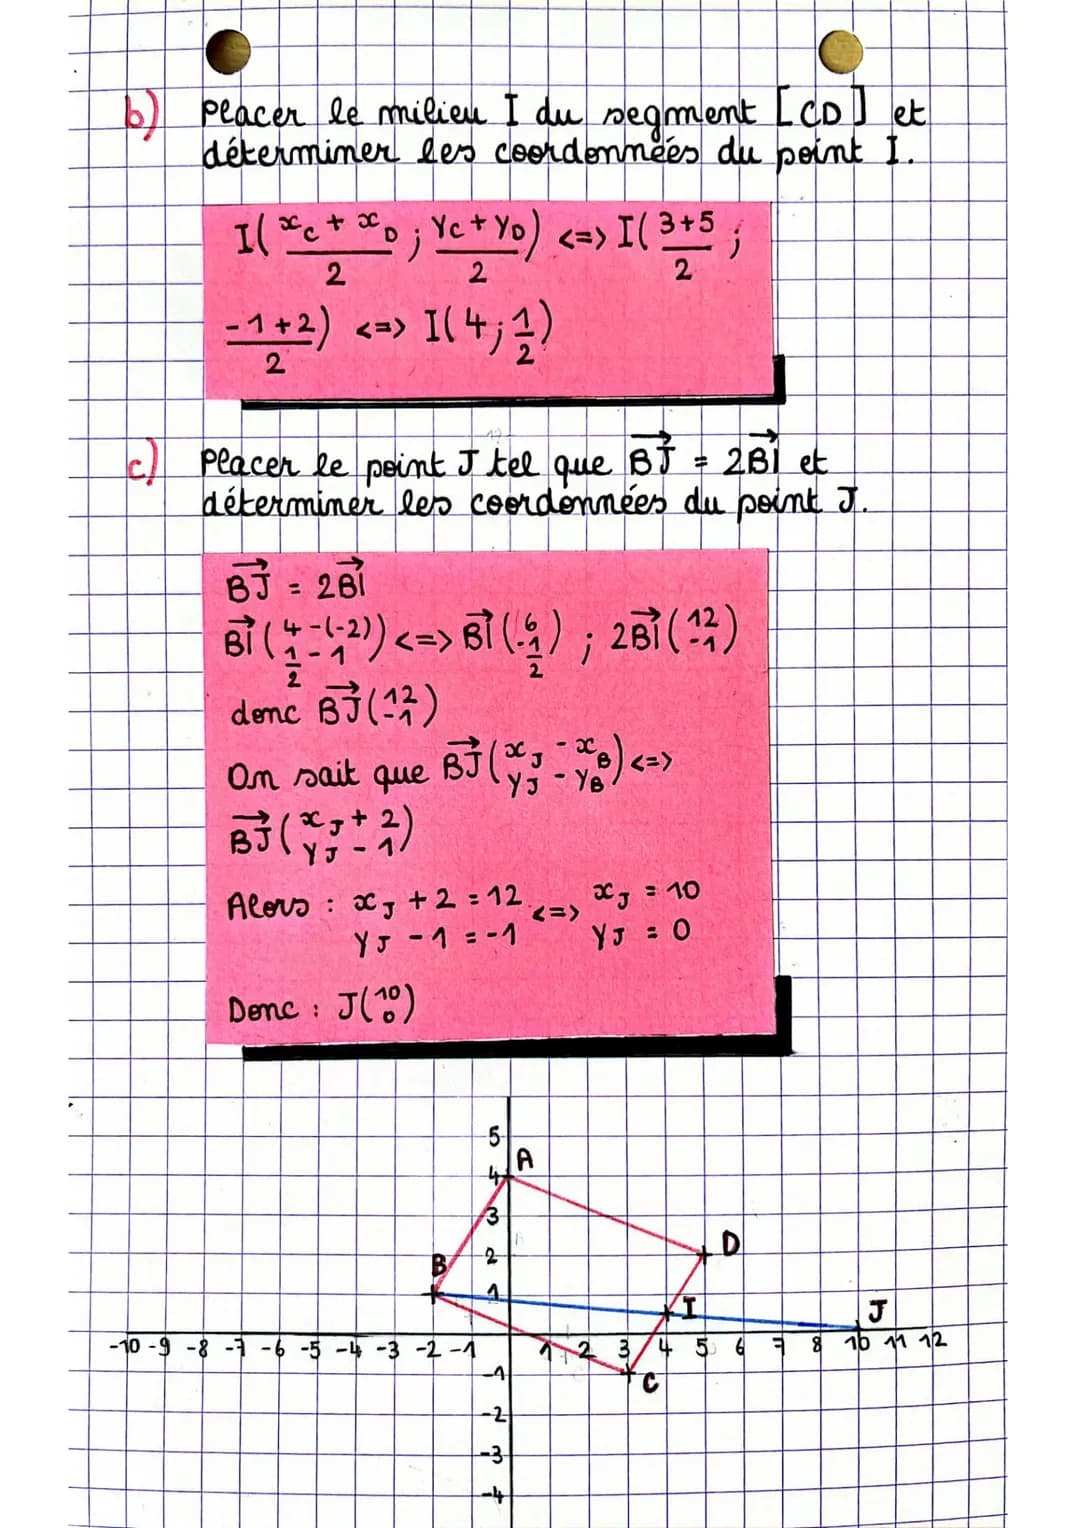 b) Placer le milieu I du segment [CD] et
déterminer les coordonnées du point I.
I( (x_C + x_D)/2 ; (y_C + y_D)/2 ) <=> I( (3+5)/2 ;
(-1+2)/2 ) <=> I( 4 ; 1/2 )
c) Placer le point J tel que →BJ = 2→BI et
déterminer les coordonnées du point J.
→BJ = 2→BI
→BI ( 4-(-2) ; 1/2 - 1 ) <=> →BI ( 6 ; -1/2 ) ; 2→BI ( 12 ; -1 )
donc →BJ ( 12 ; -1 )
On sait que →BJ ( x_J - x_B ; y_J - y_B ) <=>
→BJ ( x_J + 2 ; y_J - 1 )
Alors : x_J + 2 = 12 <=> x_J = 10
y_J - 1 = -1 y_J = 0
Donc : J( 10 ; 0 )
5
4 A
3
2 D
B
1 I J
-10 -9 -8 -7 -6 -5 -4 -3 -2 -1 1 2 3 4 5 6 7 8 10 11 12
-1 C
-2
-3
-4